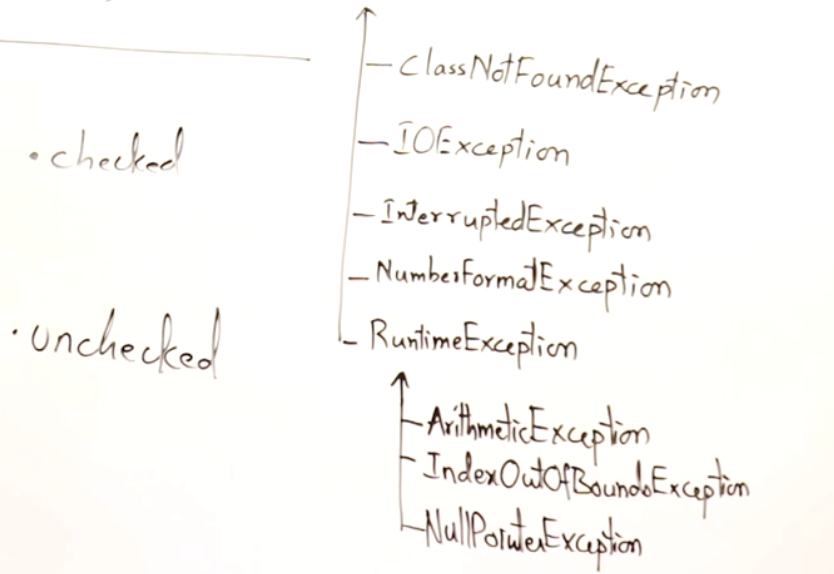 ClassNotFoundException
• checked
IOException
InterruptedException
NumberFormatException
• unchecked
RuntimeException
ArithmeticException
IndexOutOfBoundsException
NullPointerException